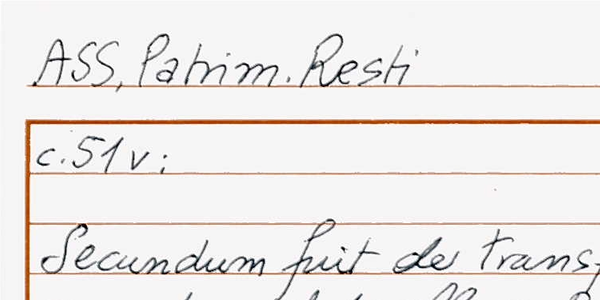 ASS, Patrim. Resti
c. 51 v:
Secundum fuit de trans